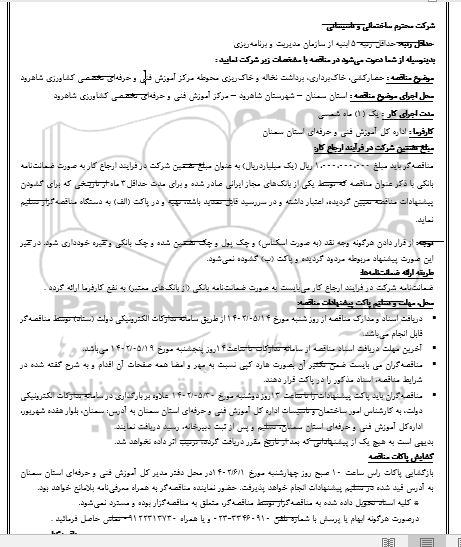 شرکت محترم ساختمانی و تاسیساتی
حداقل رتبه: حداقل رتبه ۵ ابنیه از سازمان مدیریت و برنامه‌ریزی
بدینوسیله از شما دعوت می‌شود در مناقصه با مشخصات زیر شرکت نمایید :
موضوع مناقصه : حصارکشی، خاک‌برداری، برداشت نخاله و خاک‌ریزی محوطه مرکز آموزش فنی و حرفه‌ای تخصصی کشاورزی شاهرود
محل اجرای موضوع مناقصه : استان سمنان – شهرستان شاهرود – مرکز آموزش فنی و حرفه‌ای تخصصی کشاورزی شاهرود
مدت اجرای کار : یک (۱) ماه شمسی
کارفرما : اداره کل آموزش فنی و حرفه‌ای استان سمنان
مبلغ تضمین شرکت در فرآیند ارجاع کار:
مناقصه‌گر باید مبلغ ۱،۰۰۰،۰۰۰،۰۰۰ ریال (یک میلیاردریال) به عنوان مبلغ تضمین شرکت در فرایند ارجاع کار به صورت ضمانت‌نامه
بانکی با ذکر عنوان مناقصه که توسط یکی از بانک‌های مجاز ایرانی صادر شده و برای مدت حداقل ۳ ماه از تاریخی که برای گشودن
پیشنهادات مناقصه تعیین گردیده، اعتبار داشته و در سررسید قابل تمدید باشد، تهیه و در پاکت (الف) به دستگاه مناقصه‌گزار تسلیم
نماید.
توجه: از قرار دادن هرگونه وجه نقد (به صورت اسکناس) و چک پول و چک تضمین شده و چک بانکی و غیره خودداری شود. در غیر
این صورت پیشنهاد مربوطه مردود گردیده و پاکت (ب) گشوده نمی‌شود.
طریقه ارائه ضمانت‌نامه‌ها:
ضمانت‌نامه شرکت در فرایند ارجاع کار می‌بایست به صورت ضمانت‌نامه بانکی (از بانک‌های معتبر) به نفع کارفرما ارائه گردد .
محل، مهلت و تسلیم پاکت پیشنهادات مناقصه:
دریافت اسناد و مدارک مناقصه از روز شنبه مورخ ۱۴۰۲/۰۵/۱۴ از طریق سامانه تدارکات الکترونیکی دولت (ستاد) توسط مناقصه‌گر
قابل انجام می‌باشد.
آخرین مهلت دریافت اسناد مناقصه از سامانه تدارکات تا ساعت ۱۴ روز پنجشنبه مورخ ۱۴۰۲/۰۵/۱۹ می‌باشد.
مناقصه‌گران می بایست ضمن تکثیر آن بصورت هارد کپی نسبت به مهر و امضا همه صفحات آن اقدام و به شرح گفته شده در
شرایط مناقصه، اسناد مذکور را در پاکت قرار دهند.
مناقصه‌گران باید پاکت پیشنهادات را تا ساعت ۱۳ روز دوشنبه مورخ ۱۴۰۲/۰۵/۳۰ علاوه بر بارگذاری در سامانه تدارکات الکترونیکی
دولت، به کارشناس امور ساختمان و تاسیسات اداره کل آموزش فنی و حرفه‌ای استان سمنان به آدرس: سمنان، بلوار هفده شهریور،
اداره کل آموزش فنی و حرفه‌ای استان سمنان، تسلیم و پس از ثبت دبیرخانه، رسید دریافت نمایند.
بدیهی است به هیچ یک از پیشنهاداتی که بعد از تاریخ مقرر دریافت گردد، ترتیب اثر داده نخواهد شد.
گشایش پاکات مناقصه
بازگشایی پاکات راس ساعت ۱۰ صبح روز چهارشنبه مورخ ۱۴۰۲/۶/۱ در محل دفتر مدیر کل آموزش فنی و حرفه‌ای استان سمنان
به آدرس قید شده در تسلیم پیشنهادات انجام خواهد پذیرفت. حضور نماینده مناقصه‌گر به همراه معرفی‌نامه بلامانع خواهد بود.
* کلیه اسناد تحویل داده شده به مناقصه‌گزار توسط مناقصه‌گر، متعلق به مناقصه‌گزار بوده و مسترد نمی‌شود.
درصورت هرگونه ابهام یا پرسش با شماره تلفن ۰۲۳-۳۳۴۶۰۹۱۰ و یا همراه ۰۹۱۲۲۳۱۳۷۳۰ تماس حاصل فرمائید .